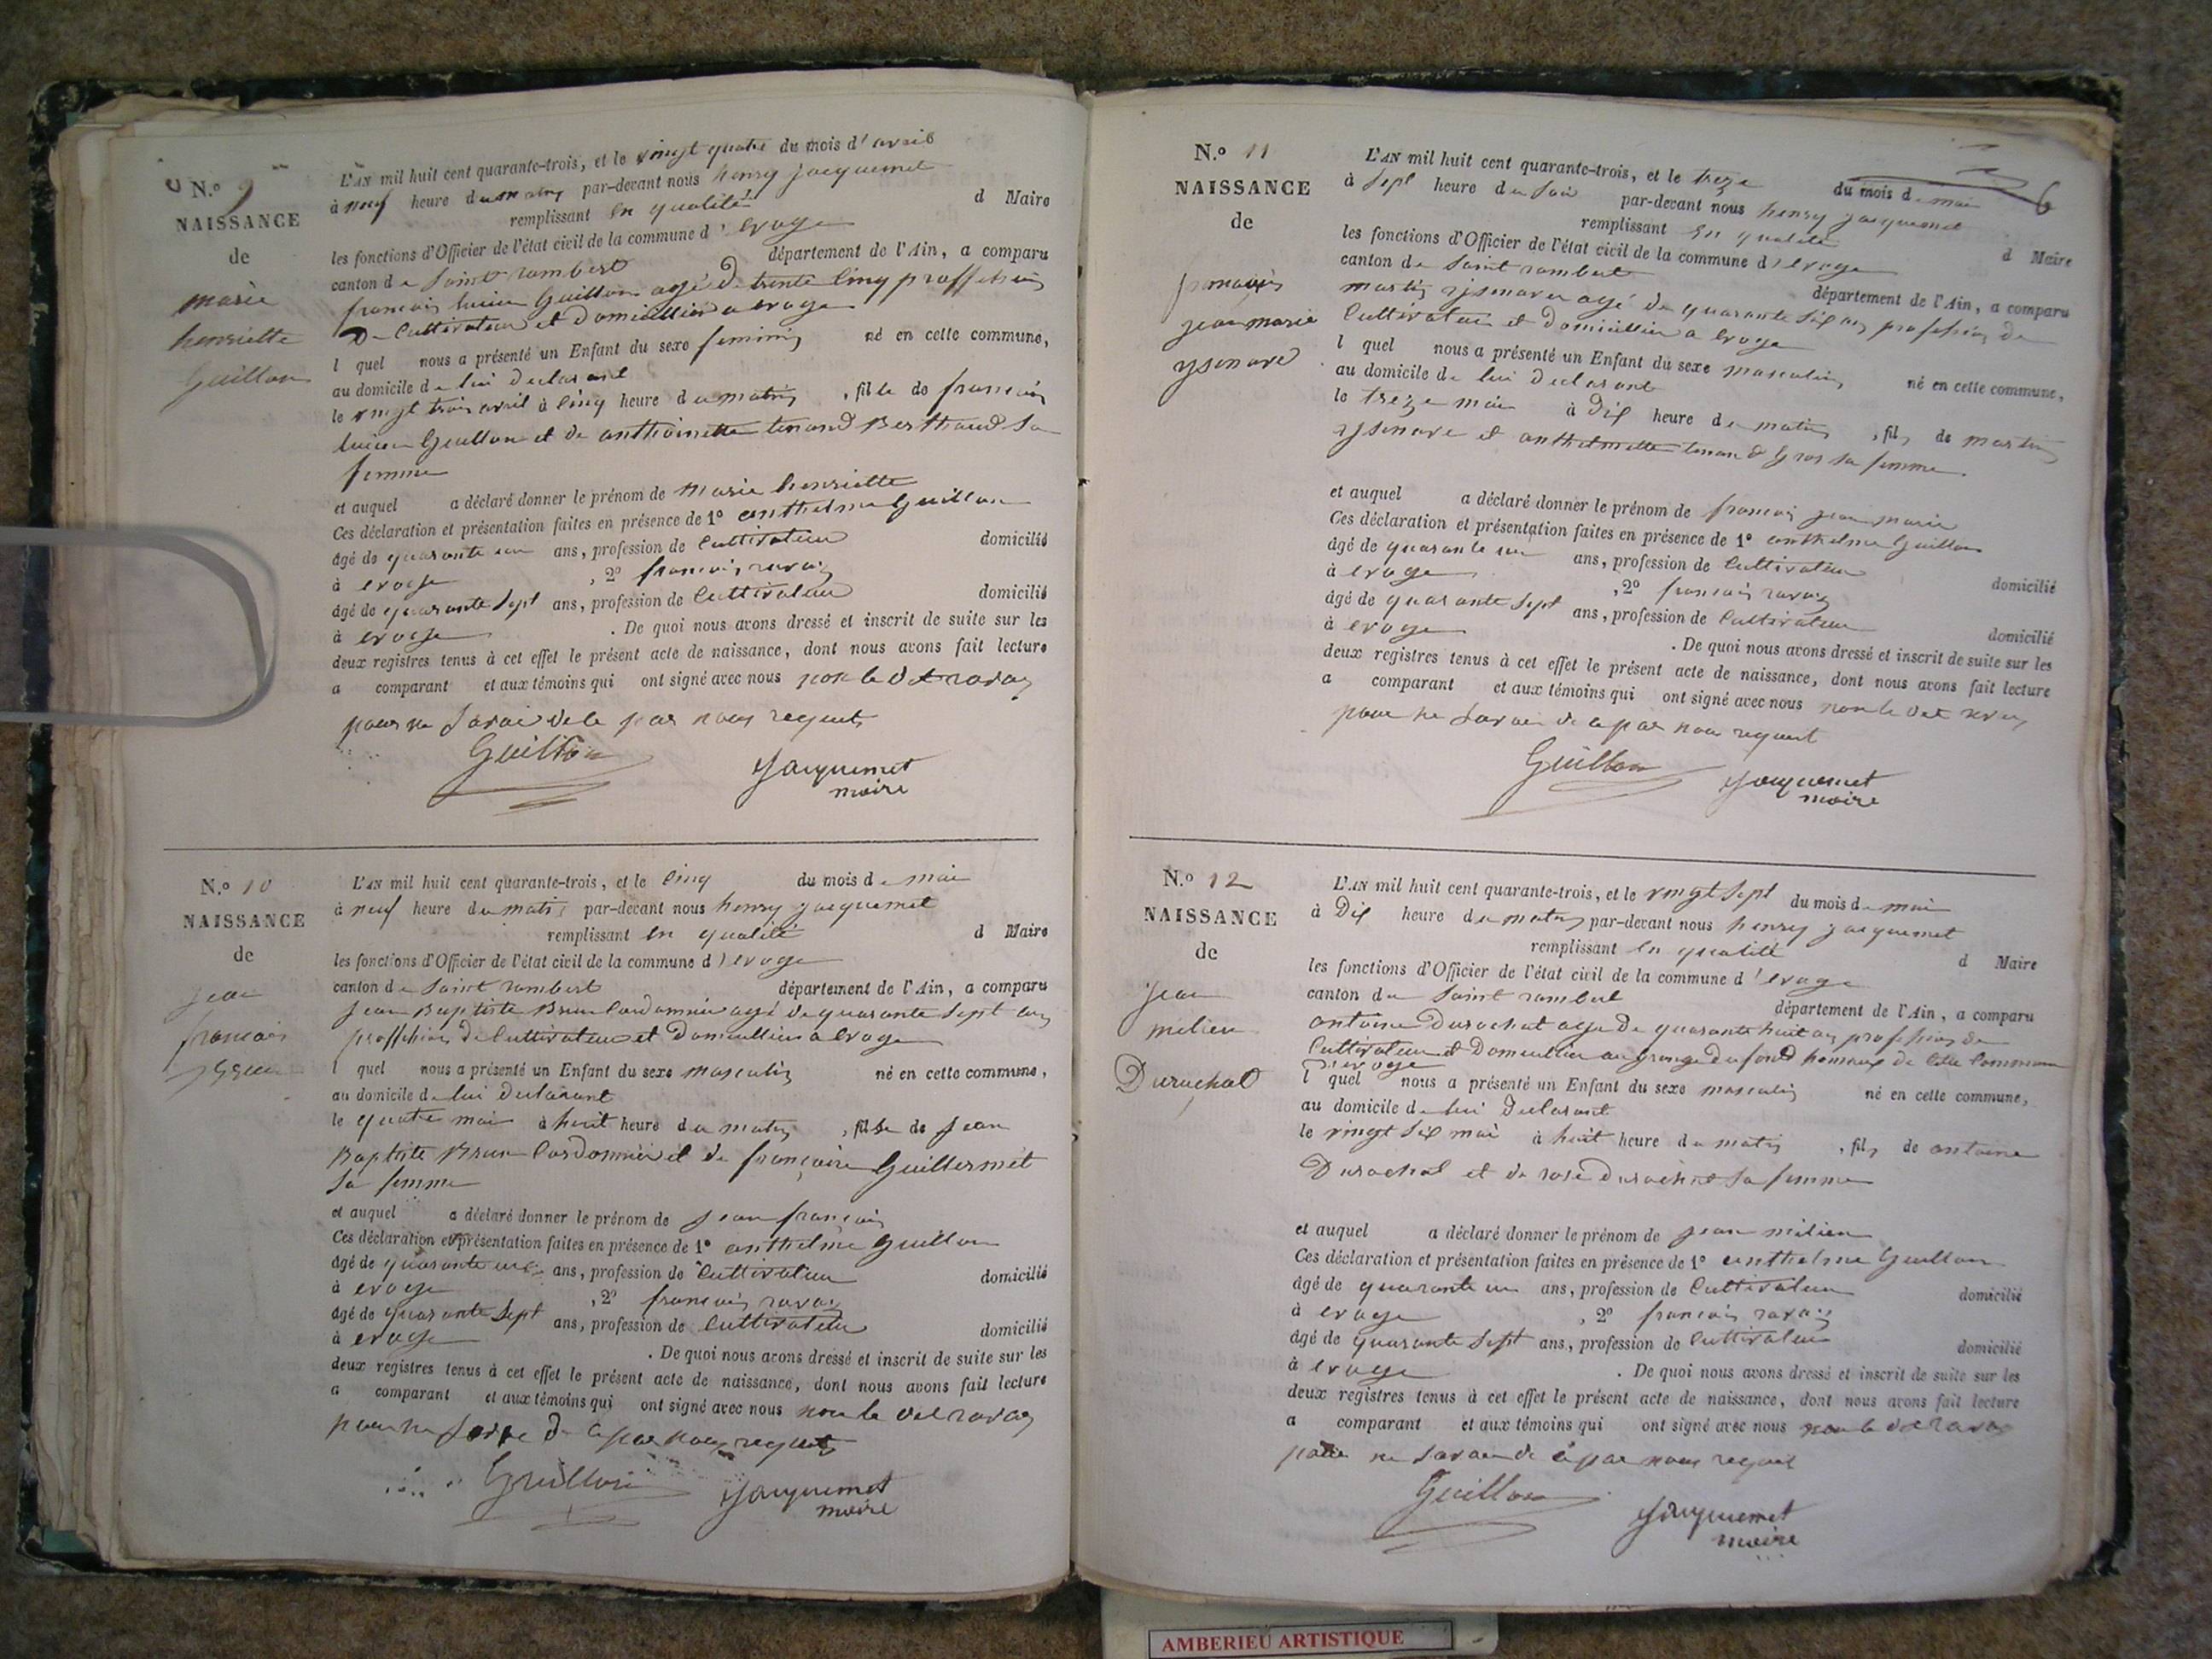 N.º 9
NAISSANCE
de
marie
henriette
Guillon
L'AN mil huit cent quarante-trois, et le vingt quatre du mois d'avril
à neuf heure du matin par-devant nous henry jacquemet
remplissant en qualité d Maire
les fonctions d'Officier de l'état civil de la commune d'evoge
canton de Saint rambert département de l'Ain, a comparu
francois lucien Guillon agé de trente cinq proffession
De Cultivateur et Domicillié a evoge
l quel nous a présenté un Enfant du sexe feminin né en cette commune,
au domicile de lui Declarant
le vingt trois avril à cinq heure du matin, fille de francois
lucien Guillon et de anthoinette tenand Berthaud Sa
femme
et auquel a déclaré donner le prénom de marie henriette
Ces déclaration et présentation faites en présence de 1º anthelme Guillon
âgé de quarante un ans, profession de Cultivateur domicilié
à evoge, 2º francois ravoz
âgé de quarante Sept ans, profession de Cultivateur domicilié
à evoge. De quoi nous avons dressé et inscrit de suite sur les
deux registres tenus à cet effet le présent acte de naissance, dont nous avons fait lecture
a comparant et aux témoins qui ont signé avec nous non le dt
pour ne Savoir de ce par nous requit
Guillon Jacquemet
maire
N.º 10
NAISSANCE
de
jean
francois
L'AN mil huit cent quarante-trois, et le cinq du mois de mai
à neuf heure du matin par-devant nous henry jacquemet
remplissant en qualité d Maire
les fonctions d'Officier de l'état civil de la commune d'evoge
canton de Saint rambert département de l'Ain, a comparu
jean Baptiste Brun Cordonnier agé de quarante Sept ans
proffession de Cultivateur et Domicillier a evoge
l quel nous a présenté un Enfant du sexe masculin né en cette commune,
au domicile de lui declarant
le quatre mai à huit heure du matin, fils de jean
Baptiste Brun Cordonnier et de françoise Guillermet
Sa femme
et auquel a déclaré donner le prénom de jean françois
Ces déclaration et présentation faites en présence de 1º anthelme Guillon
âgé de quarante un ans, profession de Cultivateur domicilié
à evoge, 2º francois ravoz
âgé de quarante Sept ans, profession de Cultivateur domicilié
à evoge. De quoi nous avons dressé et inscrit de suite sur les
deux registres tenus à cet effet le présent acte de naissance, dont nous avons fait lecture
a comparant et aux témoins qui ont signé avec nous non le
pour ne de ce par nous requit
Guillon Jacquemet
maire
6
N.º 11
NAISSANCE
de
francois
jean marie
ysenare
L'AN mil huit cent quarante-trois, et le treze du mois de mai
à Sept heure du Soir par-devant nous henry jacquemet
remplissant en qualité d Maire
les fonctions d'Officier de l'état civil de la commune d'evoge
canton de Saint rambert département de l'Ain, a comparu
martin agé de quarante Six ans profession de
Cultivateur et Domicillier a evoge
l quel nous a présenté un Enfant du sexe masculin né en cette commune,
au domicile de lui Declarant
le treize mai à Dix heure du matin, fils de martin
ysenare et anthelmette tenand Gros sa femme
et auquel a déclaré donner le prénom de francois jean marie
Ces déclaration et présentation faites en présence de 1º anthelme Guillon
âgé de quarante un ans, profession de Cultivateur domicilié
à evoge, 2º francois ravoz
âgé de quarante Sept ans, profession de Cultivateur domicilié
à evoge. De quoi nous avons dressé et inscrit de suite sur les
deux registres tenus à cet effet le présent acte de naissance, dont nous avons fait lecture
a comparant et aux témoins qui ont signé avec nous non le
pour ne Savoir de ce par nous requit
Guillon Jacquemet
maire
N.º 12
NAISSANCE
de
jean
milien
Durochat
L'AN mil huit cent quarante-trois, et le vingt Sept du mois de mai
à Dix heure du matin par-devant nous henry jacquemet
remplissant en qualité d Maire
les fonctions d'Officier de l'état civil de la commune d'evoge
canton de Saint rambert département de l'Ain, a comparu
antoine Durochat age de quarante huit ans profession de
Cultivateur et Domicillier au grange du fond hameaux de Cette Commune
D'evoge
l quel nous a présenté un Enfant du sexe masculin né en cette commune,
au domicile de lui Declarant
le vingt Six mai à huit heure du matin, fils de antoine
Durochat et de rose durochat Sa femme
et auquel a déclaré donner le prénom de jean milien
Ces déclaration et présentation faites en présence de 1º anthelme Guillon
âgé de quarante un ans, profession de Cultivateur domicilié
à evoge, 2º francois ravoz
âgé de quarante Sept ans, profession de Cultivateur domicilié
à evoge. De quoi nous avons dressé et inscrit de suite sur les
deux registres tenus à cet effet le présent acte de naissance, dont nous avons fait lecture
a comparant et aux témoins qui ont signé avec nous non le
pour ne Savoir de ce par nous requit
Guillon Jacquemet
maire
AMBERIEU ARTISTIQUE